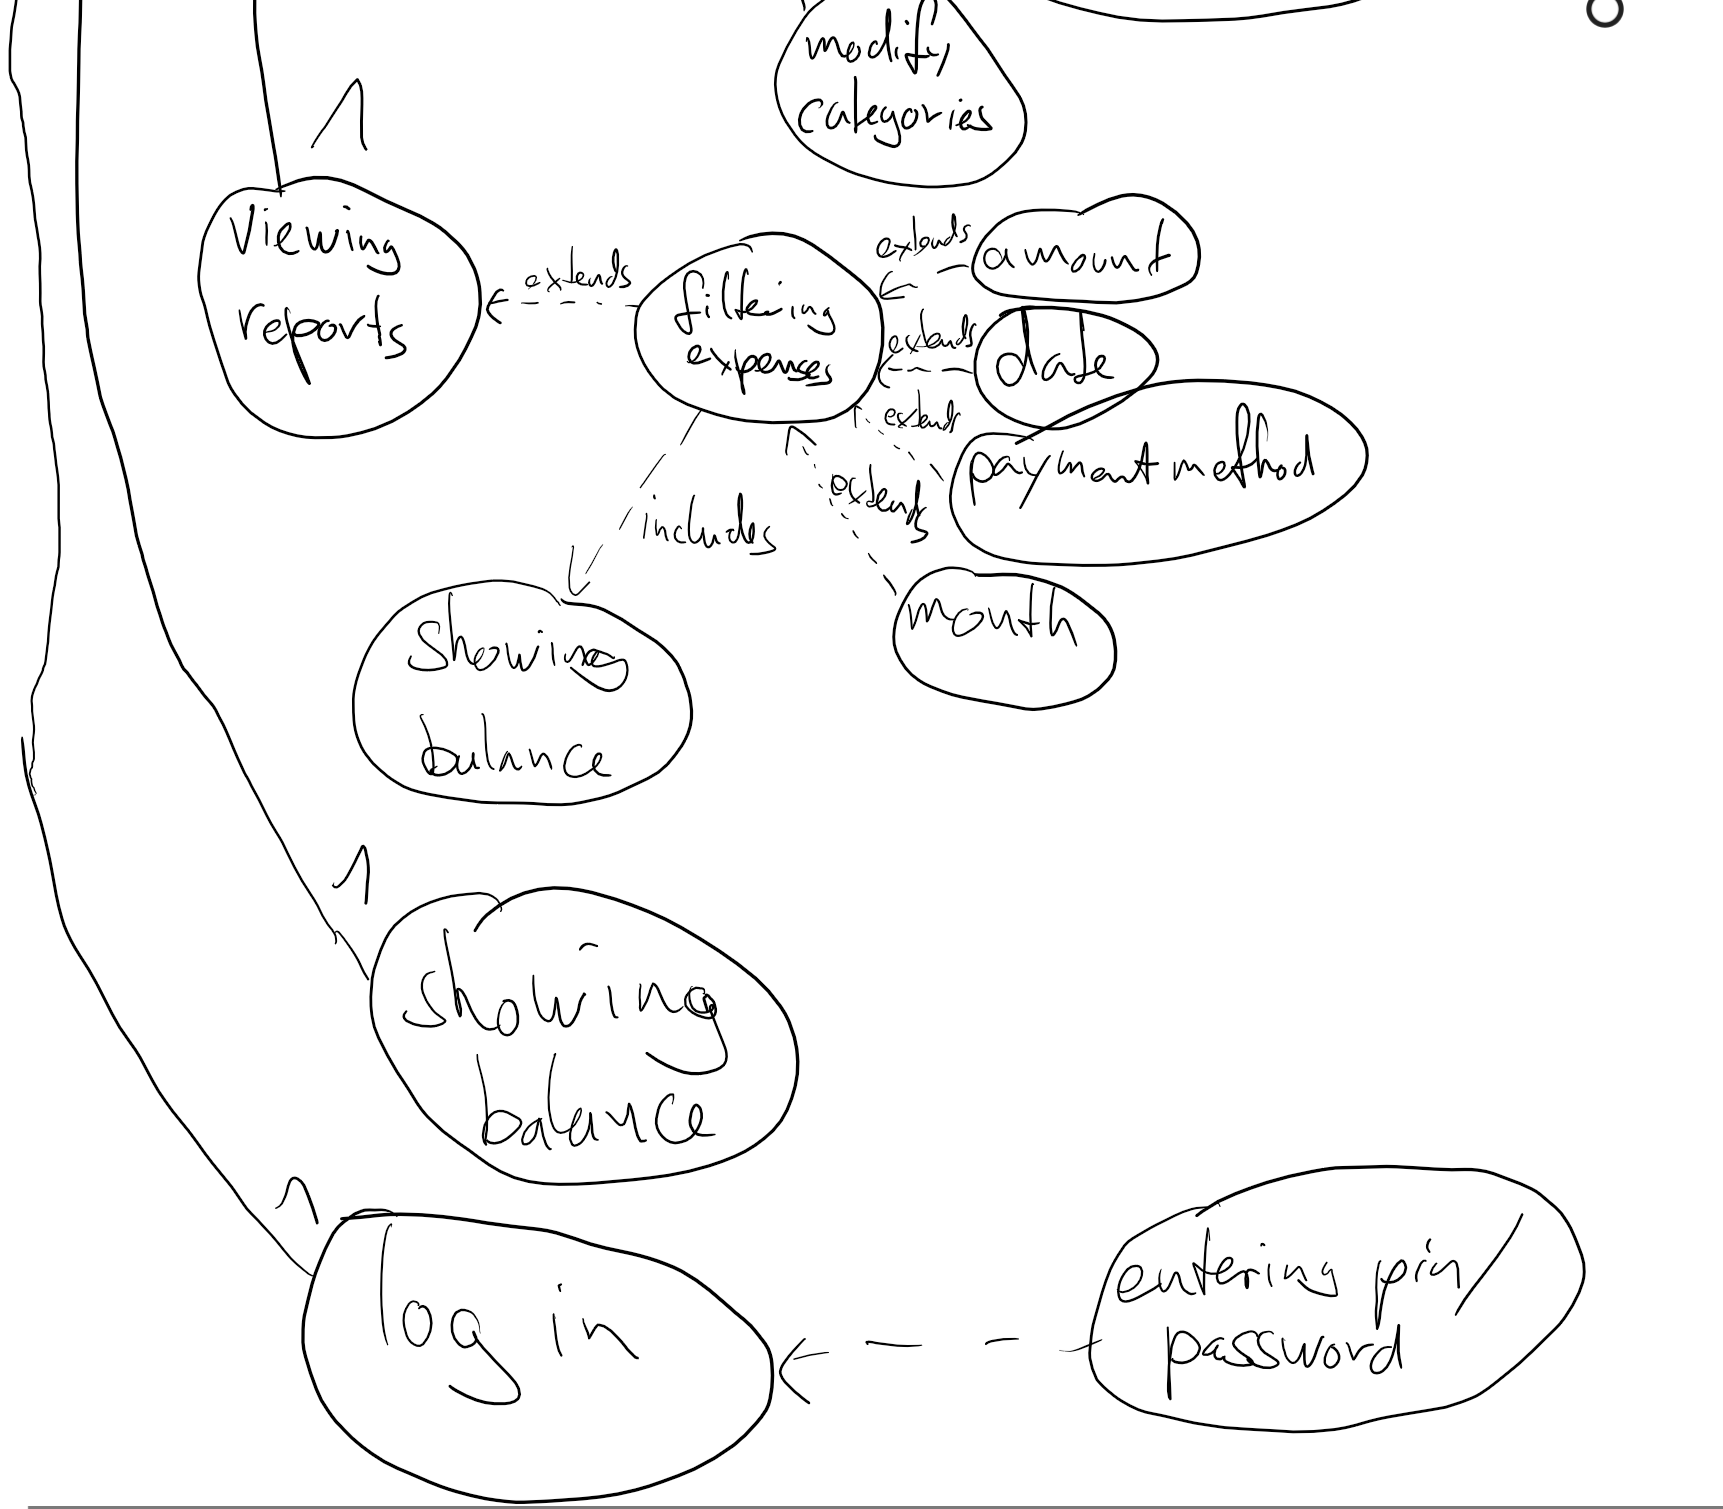 modify
categories
1
Viewing
reports
extends
filtering
expenses
extends
amount
extends
date
extends
payment method
extends
month
includes
showing
balance
1
showing
balance
1
log in
entering pin/
password